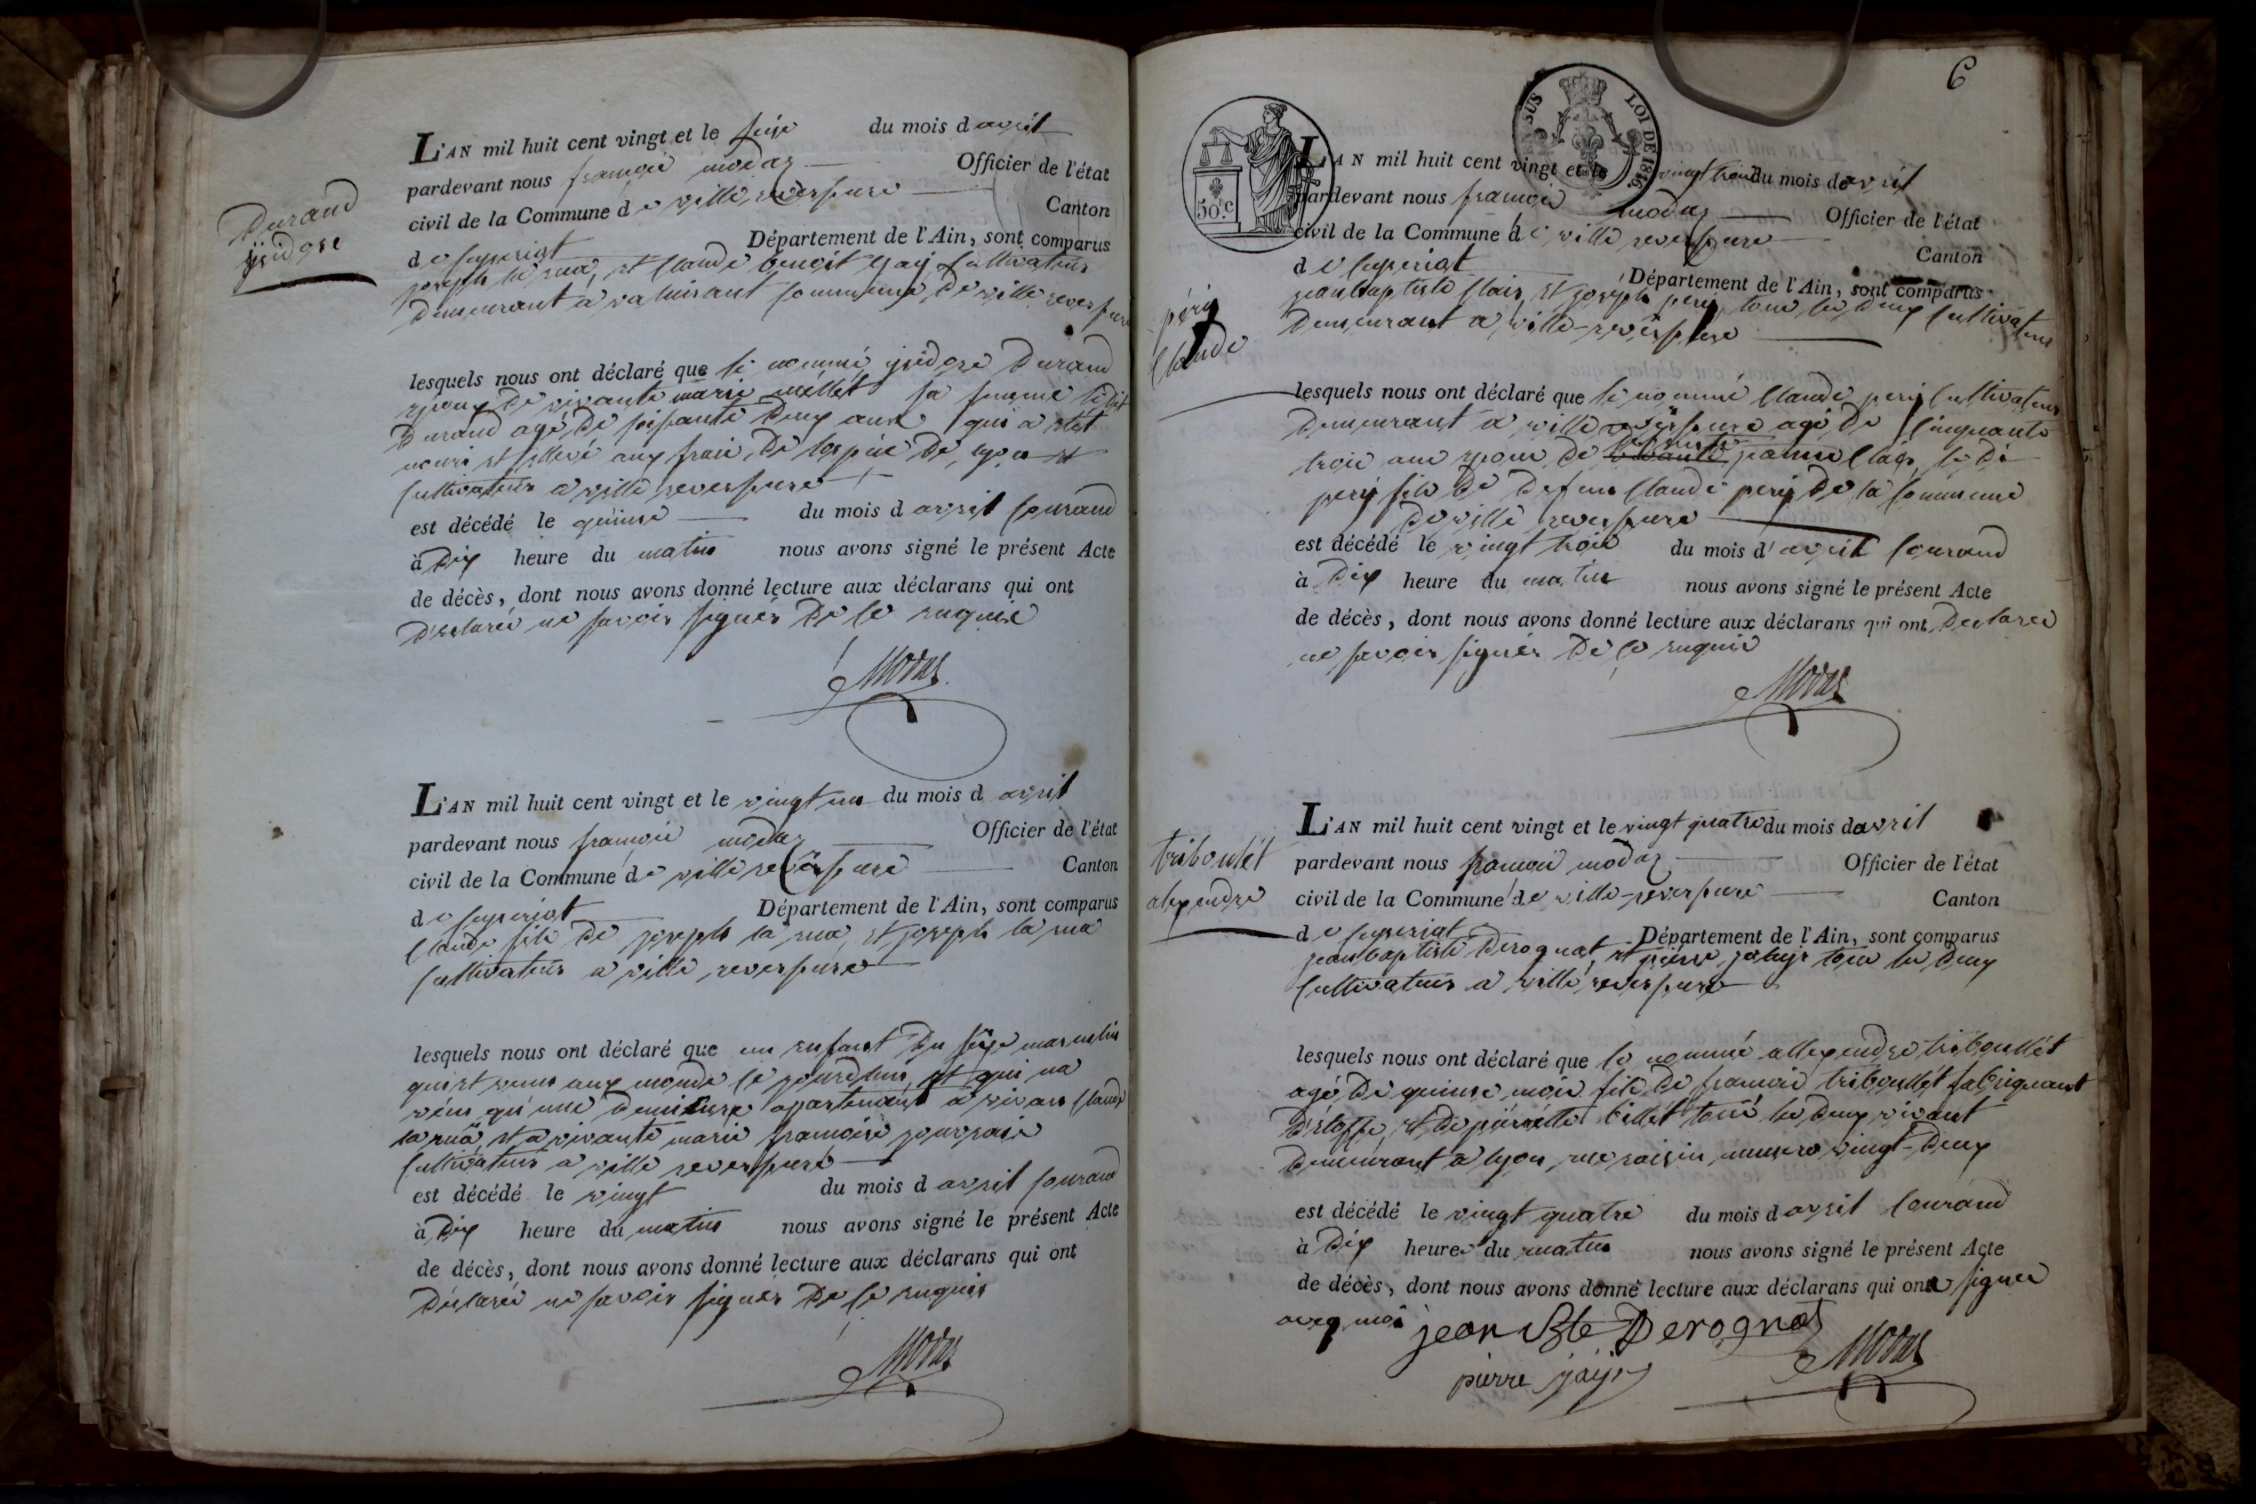 Durand
jsidore
L'AN mil huit cent vingt et le seize du mois d avril
pardevant nous françois modas Officier de l'état
civil de la Commune de ville reversure Canton
de ceyseriat Département de l'Ain, sont comparus
joseph la rua, et Claude benoit gay Cultivateurs
Demeurant a Commune de ville reversure
lesquels nous ont déclaré que le nommé jsidore Durand
epoux De vivante marie millet sa femme le dit
Durand agé De soisante Deux ans qui a etét
nouri et ellevé aux frais De lospice De lyon et
Cultivateur a ville reversure
est décédé le quinse du mois d avril Courand
à Dix heure du matin nous avons signé le présent Acte
de décès, dont nous avons donné lecture aux déclarans qui ont
Déclaré ne savoir signer De ce requis
Modas
L'AN mil huit cent vingt et le vingt un du mois d avril
pardevant nous françois modas Officier de l'état
civil de la Commune de ville reversure Canton
de ceyseriat Département de l'Ain, sont comparus
Claude fils De joseph la rua, et joseph la rua
Cultivateur a ville reversure
lesquels nous ont déclaré que un enfant Du sexe masculin
qui et venus aux monde le jourdhui, et qui na
vécu qu'une Demieure apartenant a vivant Claude
la rua, et a vivante marie françoise
Cultivateur a ville reversure
est décédé le vingt du mois d avril Courand
à Dix heure du matin nous avons signé le présent Acte
de décès, dont nous avons donné lecture aux déclarans qui ont
Déclaré ne savoir signer De ce requis
Modas
6
SUS LOI DE 1816
50.c
péry
Claude
L'AN mil huit cent vingt et le vingt trois du mois de avril
pardevant nous françois modas Officier de l'état
civil de la Commune de ville reversure Canton
de ceyseriat Département de l'Ain, sont comparus
jeanbaptiste Clair, et joseph pery tous les deux Cultivateurs
Demeurant a ville-reversure
lesquels nous ont déclaré que le nommé Claude pery Cultivateur
Demeurant a ville reversure agé De Cinquante
trois ans epoux De vivante le Di
pery fils De Defun Claude pery De la Commune
De ville reversure
est décédé le vingt trois du mois d'avril Courand
à Dix heure du matin nous avons signé le présent Acte
de décès, dont nous avons donné lecture aux déclarans qui ont Déclaré
ne savoir signer De ce requis
Modas
triboulét
alexendre
L'AN mil huit cent vingt et le vingt quatre du mois de avril
pardevant nous françois modas Officier de l'état
civil de la Commune de ville-reversure Canton
de ceyseriat Département de l'Ain, sont comparus
jeanbaptiste Derognat, et pierre tous les Deux
Cultivateurs a ville reversure
lesquels nous ont déclaré que le nommé allexendre triboullét
agé De quinse mois fils De françois triboullét fabriquant
D'étoffe, et De pierrette billét tous les Deux vivant
Demeurant a lyon, rue raisin, numero vingt-Deux
est décédé le vingt quatre du mois d avril Courand
à Dix heure du matin nous avons signé le présent Acte
de décès, dont nous avons donné lecture aux déclarans qui ont signer
aveq moi jean Bte Derognat
pierre
Modas